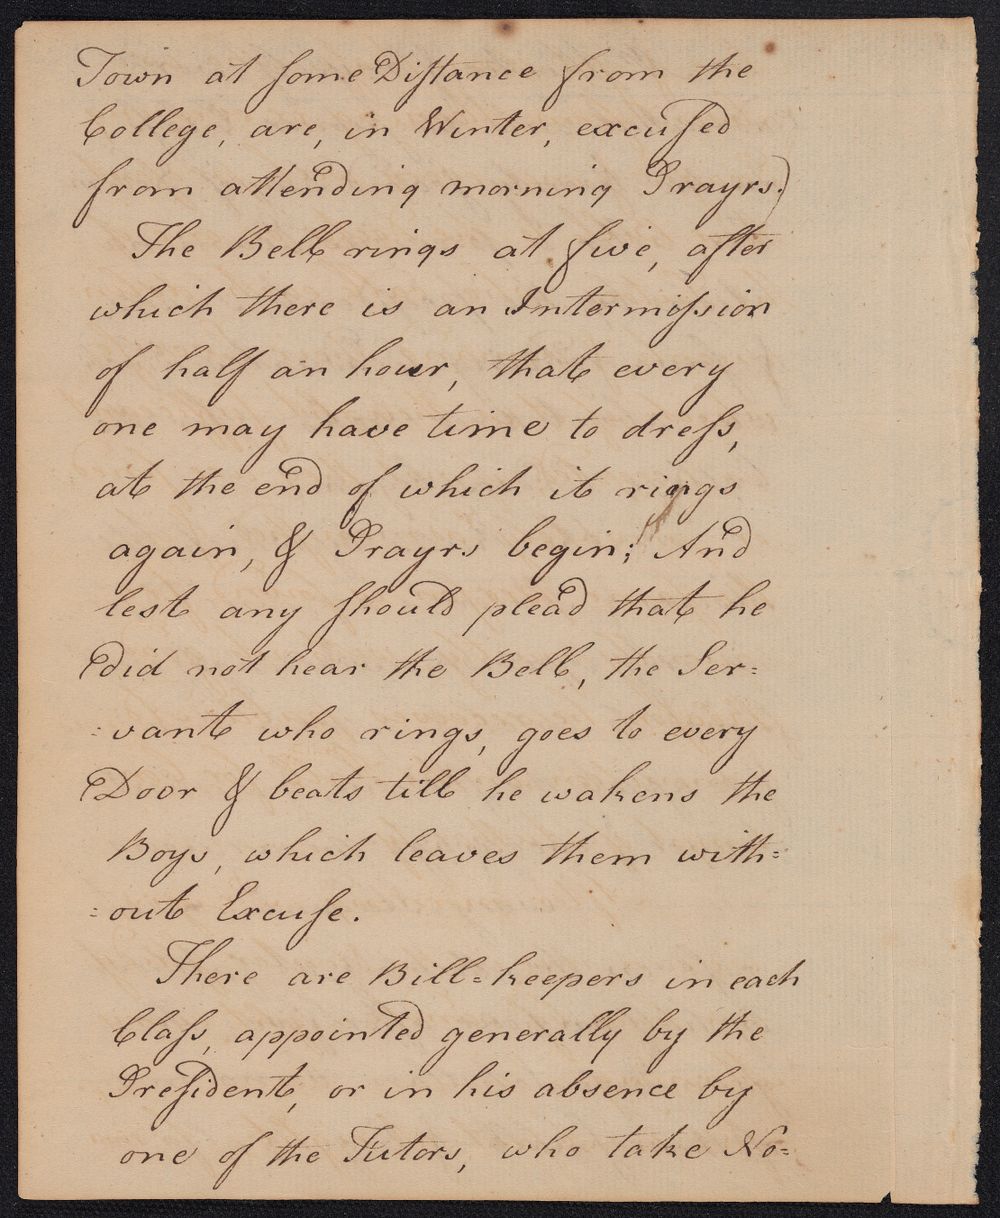 Town at some Distance from the
College, are, in Winter, excused
from attending morning Prayrs.)
The Bell rings at five, after
which there is an Intermission
of half an hour, that every
one may have time to dress,
at the end of which it rings
again, & Prayrs begin; And
lest any should plead that he
did not hear the Bell, the Ser=
=vant who rings, goes to every
Door & beats till he wakens the
Boys, which leaves them with=
=out Excuse.
There are Bill=keepers in each
Class, appointed generally by the
President, or in his absence by
one of the Tutors, who take No=